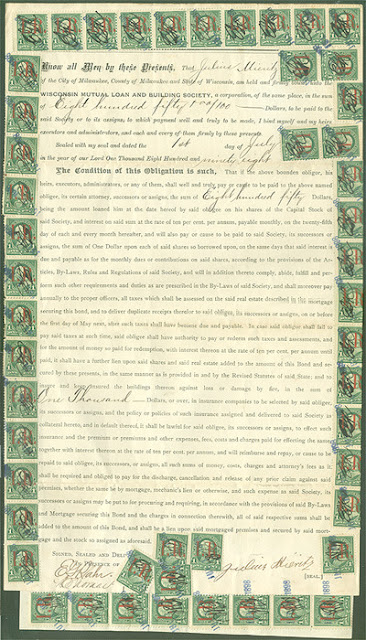 Know all Men by these Presents, That Julius
of the City of Milwaukee, County of Milwaukee and State of Wisconsin, am held and firmly
WISCONSIN MUTUAL LOAN AND BUILDING SOCIETY, a corporation of the same place, in the sum
Eight hundred fifty & 00/100 Dollars, to be paid to the
said Society or to its assigns, to which payment well and truly to be made, I bind myself and my heirs
executors and administrators, and each and every of them firmly by these presents.
Sealed with my seal and dated the 1st day of July
in the year of our Lord One Thousand Eight Hundred and ninety eight
The Condition of this Obligation is such, That if the above bounden obligor, his
heirs, executors, administrators, or any of them, shall well and truly pay or cause to be paid to the above named
obligee, its certain attorney, successors or assigns, the sum of Eight hundred fifty Dollars
being the amount loaned him at the date hereof by said obligee on his shares of the Capital Stock of
said Society, and interest on said sum at the rate of ten per cent. per annum, payable monthly, on the twenty-fifth
day of each and every month hereafter, and will also pay or cause to be paid to said Society, its successors or
assigns, the sum of One Dollar upon each of said shares so borrowed upon, on the same days that said interest is
due and payable as for the monthly dues or contributions on said shares, according to the provisions of the Ar-
ticles, By-Laws, Rules and Regulations of said Society, and will in addition thereto comply, abide, fulfill and per-
form such other requirements and duties as are prescribed in the By-Laws of said Society, and shall moreover pay
annually to the proper officers, all taxes which shall be assessed on the said real estate described in the mortgage
securing this bond, and to deliver duplicate receipts therefor to said obligee, its successors or assigns, on or before
the first day of May next, after such taxes shall have become due and payable. In case said obligor shall fail to
pay said taxes at such time, said obligee shall have authority to pay or redeem such taxes and assessments, and
for the amount of money so paid for redemption, with interest thereon at the rate of ten per cent. per annum until
paid, it shall have a further lien upon said shares and said real estate added to the amount of this Bond and se-
cured by these presents, in the same manner as is provided in and by the Revised Statutes of said State; and to
insure and keep insured the buildings thereon against loss or damage by fire, in the sum of
One Thousand Dollars, or over, in insurance companies to be selected by said obligee,
its successors or assigns, and the policy or policies of such insurance assigned and delivered to said Society in
collateral hereto, and in default thereof, it shall be lawful for said obligee, its successors or assigns, to effect such
insurance and the premium or premiums and other expenses, fees, costs and charges paid for effecting the same
together with interest thereon at the rate of ten per cent. per annum, and will reimburse and repay, or cause to be
repaid to said obligee, its successors, or assigns, all such sums of money, costs, charges and attorney's fees as it
shall be required and obliged to pay for the discharge, cancellation and release of any prior claim against said
premises, whether the same be by mortgage, mechanic's lien or otherwise, and such expense as said Society,
successors or assigns may be put to for procuring and requiring, in accordance with the provisions of said By-Laws
and Mortgage securing this Bond and the charges in connection therewith, all of said respective sums shall be
added to the amount of this Bond, and shall be a lien upon said mortgaged premises and secured by said mort-
gage and the stock so assigned as aforesaid.
SIGNED, SEALED AND
PRESENCE OF
Julius
[SEAL.]